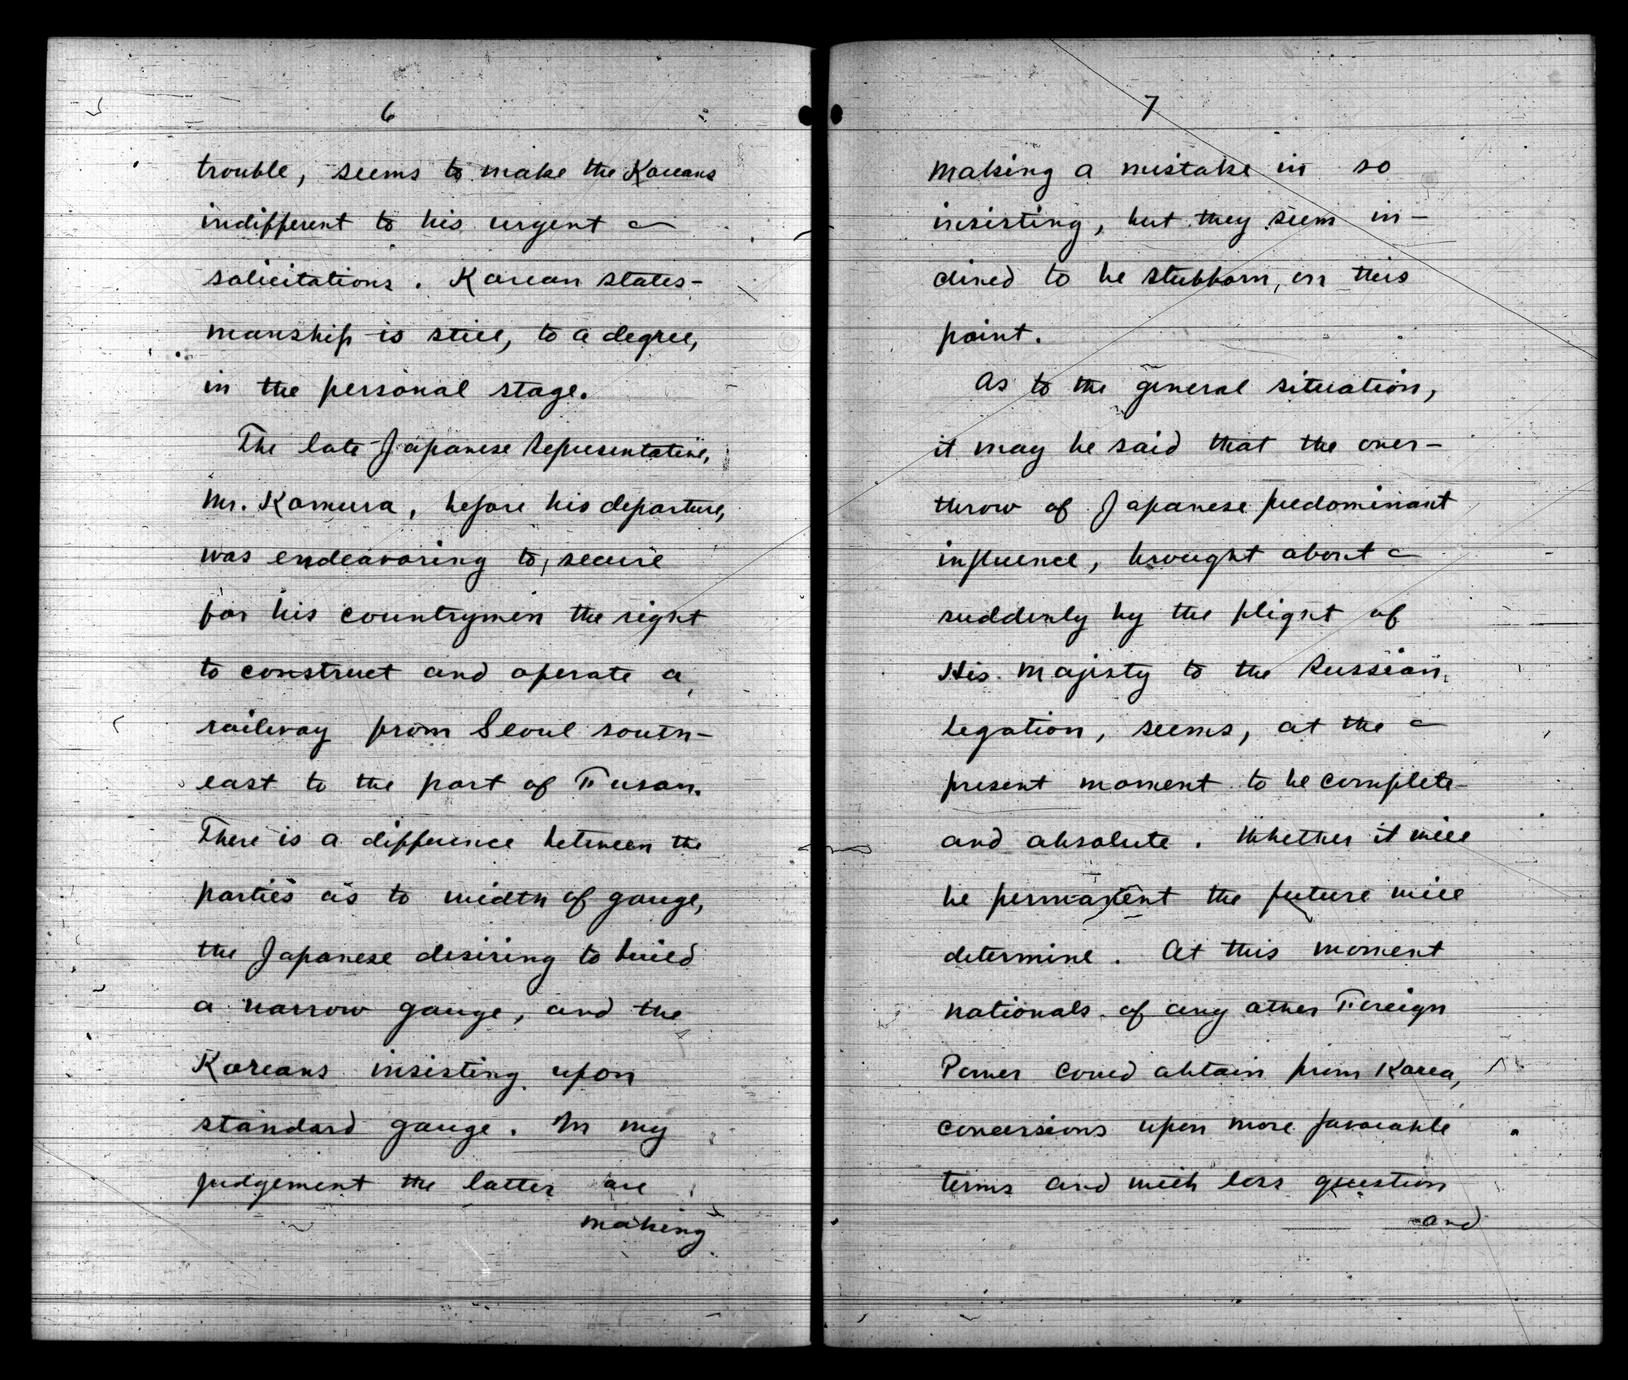 6
trouble, seems to make the Koreans
indifferent to his urgent
solicitations. Korean states-
manship is still, to a degree,
in the personal stage.
The late Japanese Representative,
Mr. Komura, before his departure,
was endeavoring to secure
for his countrymen the right
to construct and operate a
railway from Seoul south-
east to the port of Fusan.
There is a difference between the
parties as to width of gauge,
the Japanese desiring to build
a narrow gauge, and the
Koreans insisting upon
standard gauge. In my
judgement the latter are
making
7
making a mistake in so
insisting, but they seem in-
clined to be stubborn, on this
point.
As to the general situation,
it may be said that the over-
throw of Japanese predominant
influence, brought about
suddenly by the flight of
His Majesty to the Russian
legation, seems, at the
present moment to be complete
and absolute. Whether it will
be permanent the future will
determine. At this moment
nationals of any other Foreign
Power could obtain from Korea,
concessions upon more favorable
terms and with less question
and